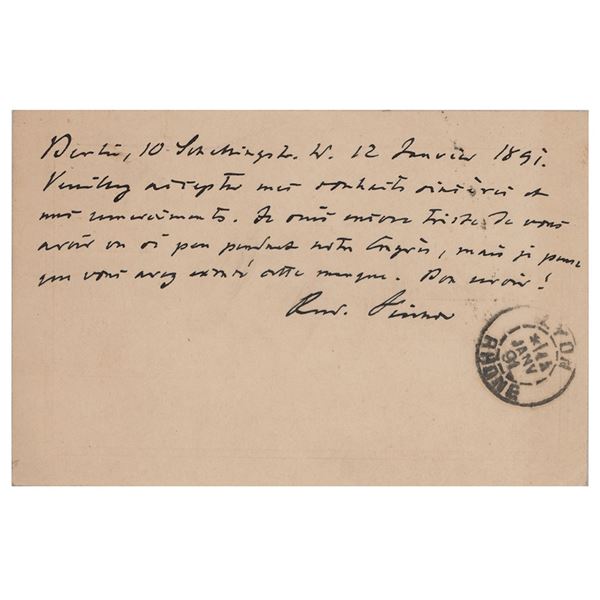 Berlin, 10 Schellingstr. W. 12 Janvier 1891.
Veuillez accepter mes souhaits sincères et
mes remerciments. Je suis encore triste de vous
avoir vu si peu pendant notre Congrès, mais je pense
que vous avez excusé cette manque. Bon revoir!
Rud.
LYON
RHONE
JANV
91